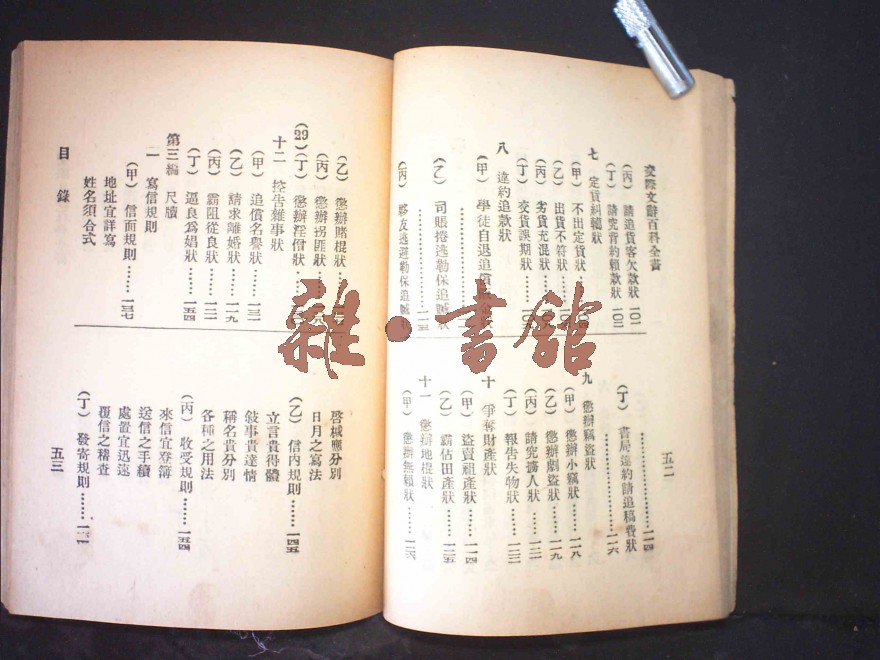 交際文辭百科全書
(丙) 請追貨客欠款狀……一〇一
(丁) 請究背約賴款狀……一〇二
七 定貨糾轕狀
(甲) 不出定貨狀
(乙) 出貨不符狀
(丙) 劣貨充混狀
(丁) 交貨誤期狀
八 違約追款狀
(甲) 學徒自退追償
(乙) 司賬捲逃勒保追賊狀
(丙) 夥友逃避勒保追賊狀
五二
……一一四
(丁) 書局違約請追稿費狀
……一一六
九 懲辦竊盜狀
(甲) 懲辦小竊狀……一一八
(乙) 懲辦劇盜狀……一一九
(丙) 請究擄人狀……一二一
(丁) 報告失物狀……一二二
十 爭奪財產狀
(甲) 盜賣祖產狀……一一四
(乙) 霸佔田產狀……一二五
十一 懲辦地棍狀
(甲) 懲辦無賴狀……一二六
(乙) 懲辦賭棍狀
(丙) 懲辦拐匪狀
(29) (丁) 懲辦淫僧狀
十二 控告雜事狀
(甲) 追償名譽狀……一三一
(乙) 請求離婚狀……一一九
(丙) 霸阻從良狀……一二一
(丁) 逼良爲娼狀……一五四
第三編 尺牘
一 寫信規則
(甲) 信面規則……一三七
地址宜詳寫
姓名須合式
目錄
啓械應分別
日月之寫法
(乙) 信內規則……一四五
立言貴得體
敍事貴達情
稱名貴分別
各種之用法
(丙) 收受規則……一五四
來信宜登簿
送信之手續
處置宜迅速
覆信之精查
(丁) 發寄規則
五三
雜·書館